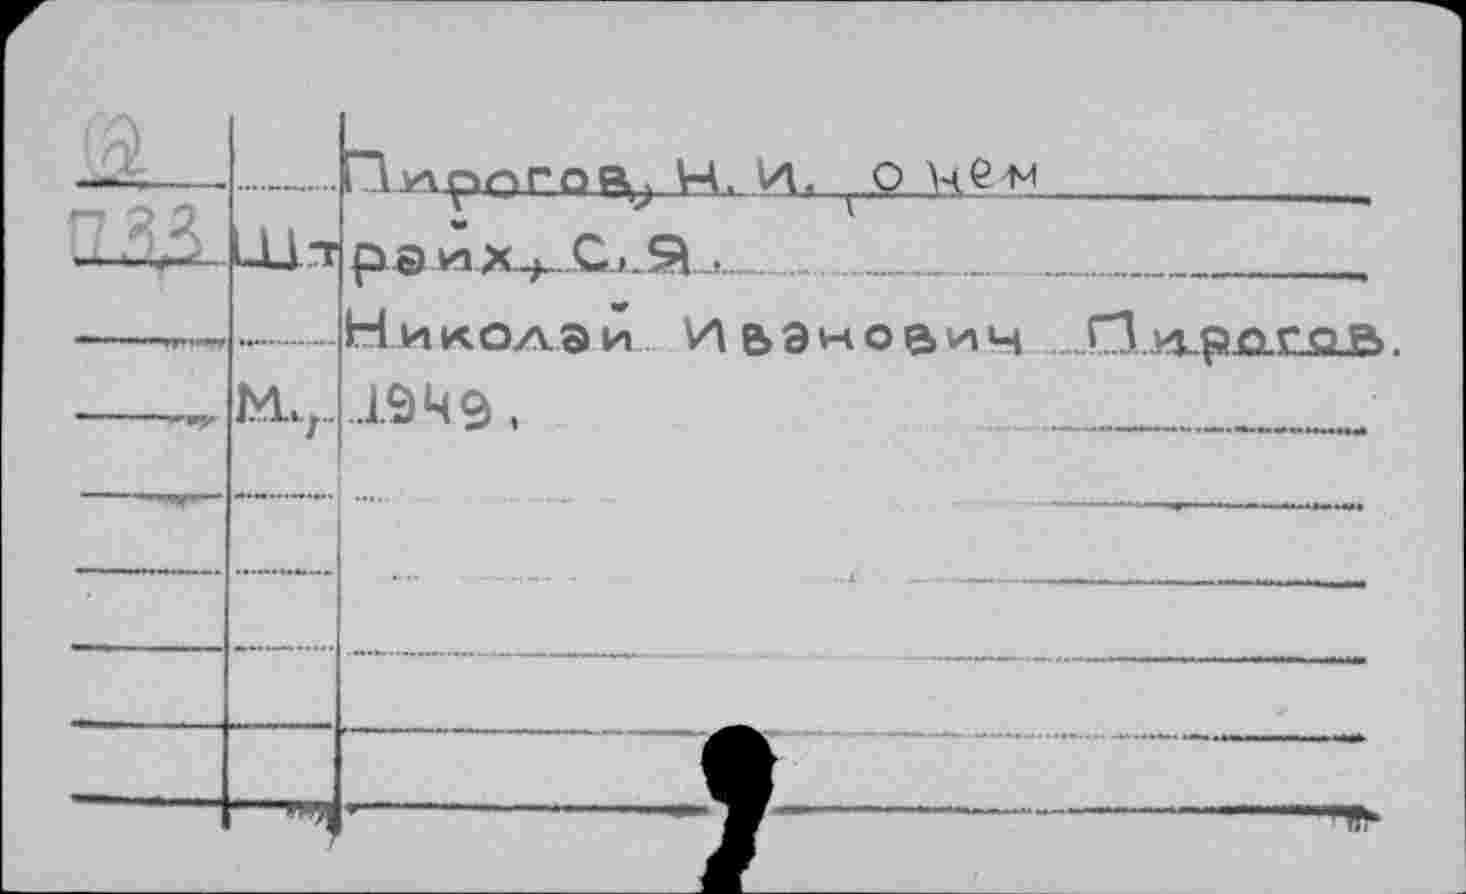 Пирогов, Н. И., о нём
П33 Штрайх, С. Я.
Николай Иванович Пирогов.
М., 1949.